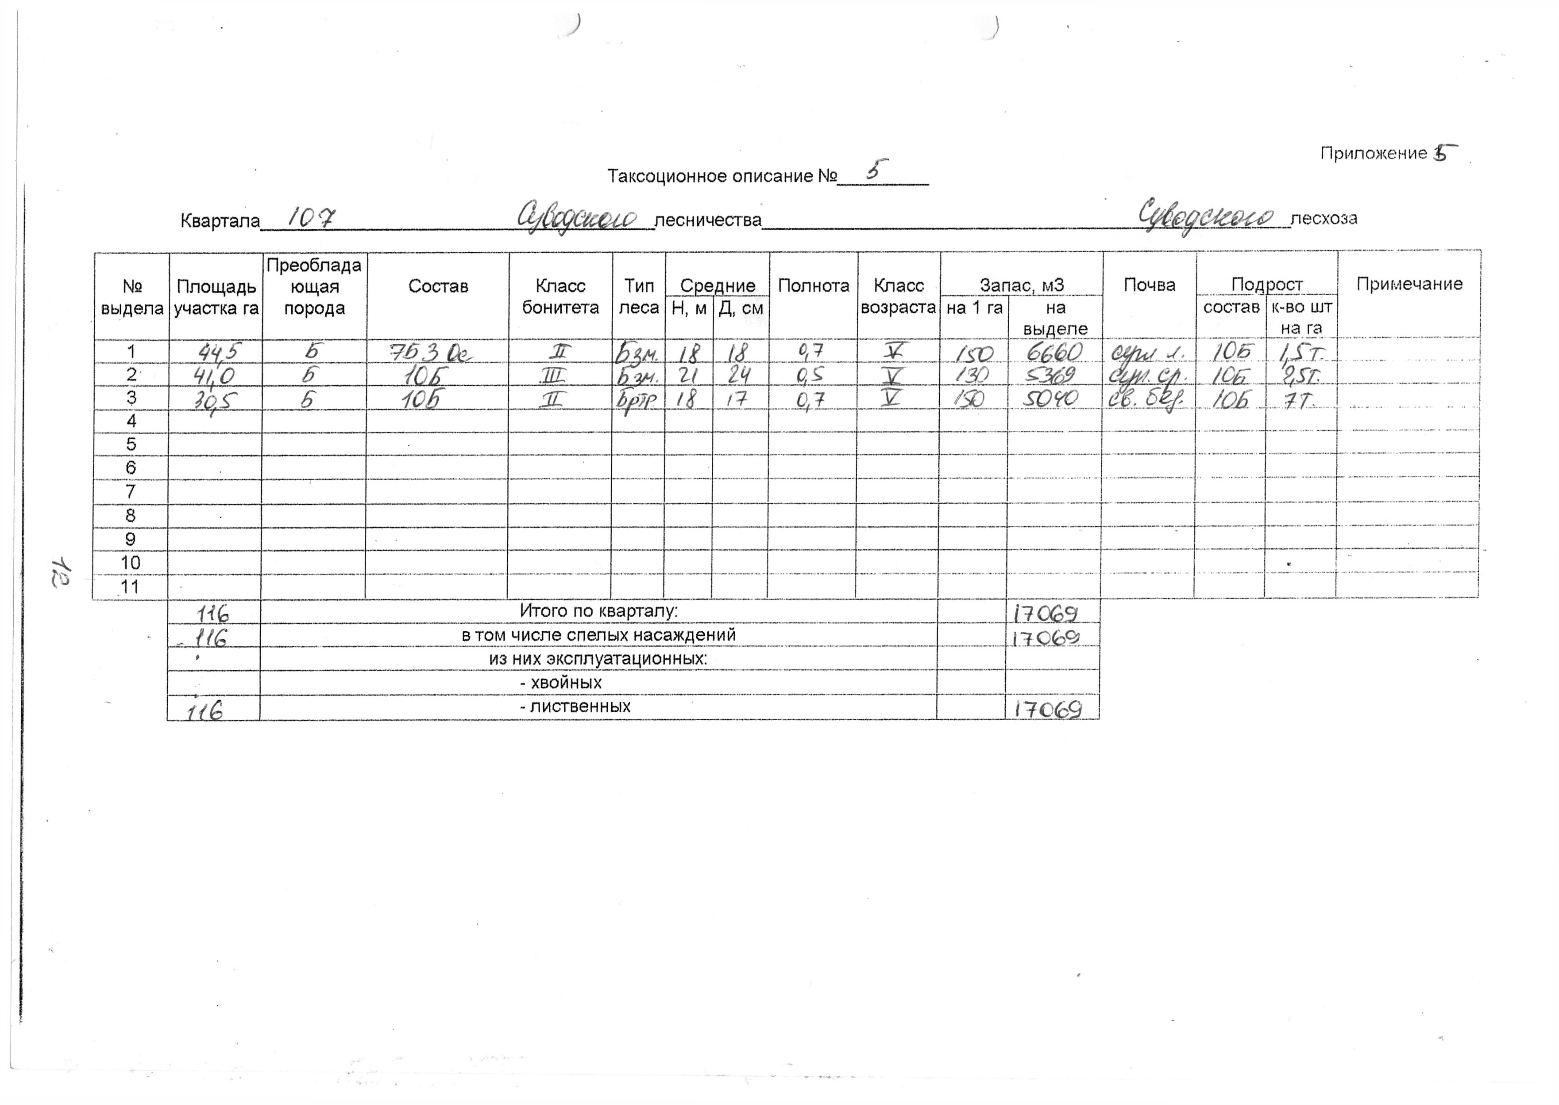 Приложение 5
Таксоционное описание № 5
Квартала 107 Суводского лесничества Суводского лесхоза
№ выдела Площадь участка га Преобладающая порода Состав Класс бонитета Тип леса Средние Н, м Д, см Полнота Класс возраста Запас, м3 на 1 га на выделе Почва Подрост состав к-во шт на га Примечание
1 44,5 Б 7Б 3 Ос II Бзм. 18 18 0,7 V 150 6660 10Б 1,5т.
2 41,0 Б 10Б III Бзм. 21 24 0,5 V 130 5369 суп. ср. 10Б 2,5т.
3 30,5 Б 10Б II Бртр 18 17 0,7 V 150 5040 св. 10Б 7т.
4
5
6
7
8
9
10
11
116 Итого по кварталу: 17069
116 в том числе спелых насаждений 17069
из них эксплуатационных:
- хвойных
116 - лиственных 17069
12